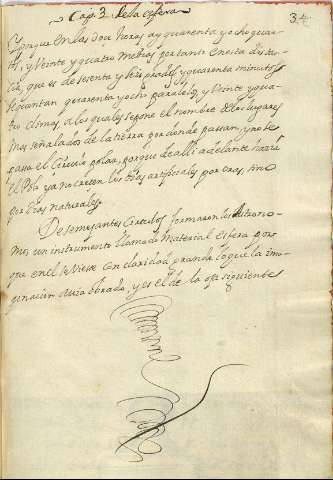 Cap. 3. de la esfera
34
Y porque en las doze horas ay quarenta y ocho quar-
tos, y Veinte y quatro medias, por tanto en esta distan-
cia, que es de sesenta y seis grados, y quarenta minutos
se quentan quarenta y ocho paralelos, y Veinte y qua-
tro climas, a los quales se pone el nombre de los lugares
mas señalados de la tierra por donde passan, y no se
passa el Circulo polar, porque de alli adelante hazia
el Polo ya no crecen los dias artificiales por oras, sino
por dias naturales.
De semejantes Circulos formaron los Astrono-
mos un instrumento llamado Material Esfera por-
que en el se viese con claridad, quando la
ginacion avia obrado, y es el de la oja siguiente